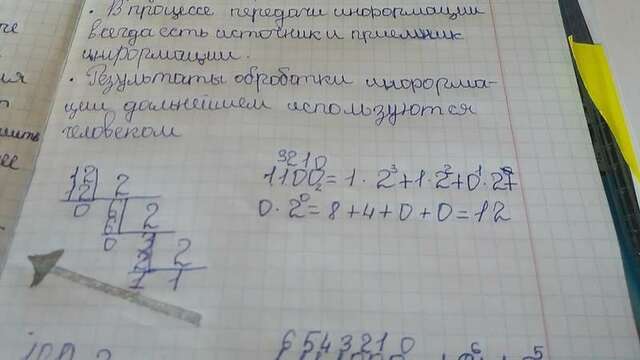 • В процессе передачи информации
всегда есть источник и приемник
информации.
• Результаты обработки информа-
ции дальнейшем используются
человеком
12 | 2
12
0 6 | 2
6
0 3 | 2
2
1 1
3210
1100₂ = 1 · 2³ + 1 · 2² + 0 · 2¹ +
0 · 2⁰ = 8 + 4 + 0 + 0 = 12
6543210